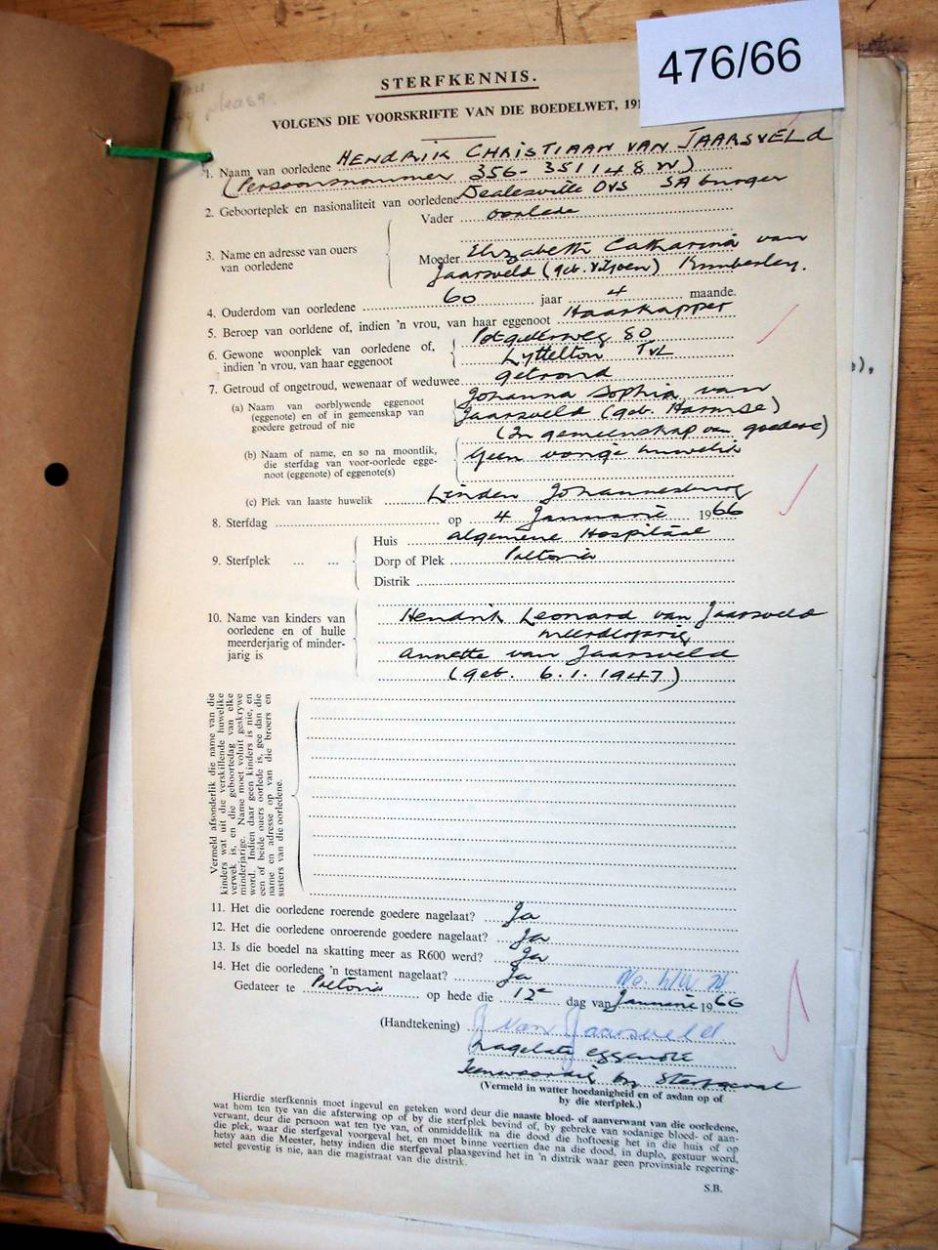 476/66
please.
STERFKENNIS.
VOLGENS DIE VOORSKRIFTE VAN DIE BOEDELWET, 191
1. Naam van oorledene HENDRIK CHRISTIAAN VAN JAARSVELD
(Persoonsnommer 356-351148 W)
2. Geboorteplek en nasionaliteit van oorledene Dealesville OVS SA burger
3. Name en adresse van ouers van oorledene
Vader oorlede
Moeder Elizabeth Catharina van
Jaarsveld (geb. Viljoen) Kimberley.
4. Ouderdom van oorledene 60 jaar 4 maande.
5. Beroep van oorldene of, indien 'n vrou, van haar eggenoot Haarkapper
6. Gewone woonplek van oorledene of, Potgieterweg 80
indien 'n vrou, van haar eggenoot Lyttelton TVL
7. Getroud of ongetroud, wewenaar of weduwee getroud
(a) Naam van oorblywende eggenoot Johanna Sophia van
(eggenote) en of in gemeenskap van Jaarsveld (geb. Harmse)
goedere getroud of nie (In gemeenskap van goedere)
(b) Naam of name, en so na moontlik, Geen vorige huwelik
die sterfdag van voor-oorlede egge-
noot (eggenote) of eggenote(s)
(c) Plek van laaste huwelik Linden Johannesburg
8. Sterfdag op 4 Januarie 1966
9. Sterfplek ... ...
Huis Algemene Hospitaal
Dorp of Plek Pretoria
Distrik
10. Name van kinders van Hendrik Leonard van Jaarsveld
oorledene en of hulle meerderjarig
meerderjarig of minder- Annette van Jaarsveld
jarig is (geb. 6.1.1947)
Vermeld afsonderlik die name van die
kinders wat uit die verskillende huwelike
verwek is, en die geboortedag van elke
minderjarige. Name moet voluit geskrywe
word. Indien daar geen kinders is nie, en
een of beide ouers oorlede is, gee dan die
name en adresse op van die broers en
susters van die oorledene.
11. Het die oorledene roerende goedere nagelaat? Ja
12. Het die oorledene onroerende goedere nagelaat? Ja
13. Is die boedel na skatting meer as R600 werd? Ja
14. Het die oorledene 'n testament nagelaat? Ja
Gedateer te Pretoria op hede die 12e dag van Januarie 1966
(Handtekening) J van Jaarsveld
Nagelate eggenote
Teenwoordig by sterfgeval
(Vermeld in watter hoedanigheid en of asdan op of
by die sterfplek.)
Hierdie sterfkennis moet ingevul en geteken word deur die naaste bloed- of aanverwant van die oorledene,
wat hom ten tye van die afsterwing op of by die sterfplek bevind of, by gebreke van sodanige bloed- of aan-
verwant, deur die persoon wat ten tye van, of onmiddellik na die dood die hoftoesig het in die huis of op
die plek, waar die sterfgeval voorgeval het, en moet binne veertien dae na die dood, in duplo, gestuur word,
hetsy aan die Meester, hetsy indien die sterfgeval plaasgevind het in 'n distrik waar geen provinsiale regering-
setel gevestig is nie, aan die magistraat van die distrik.
S.B.